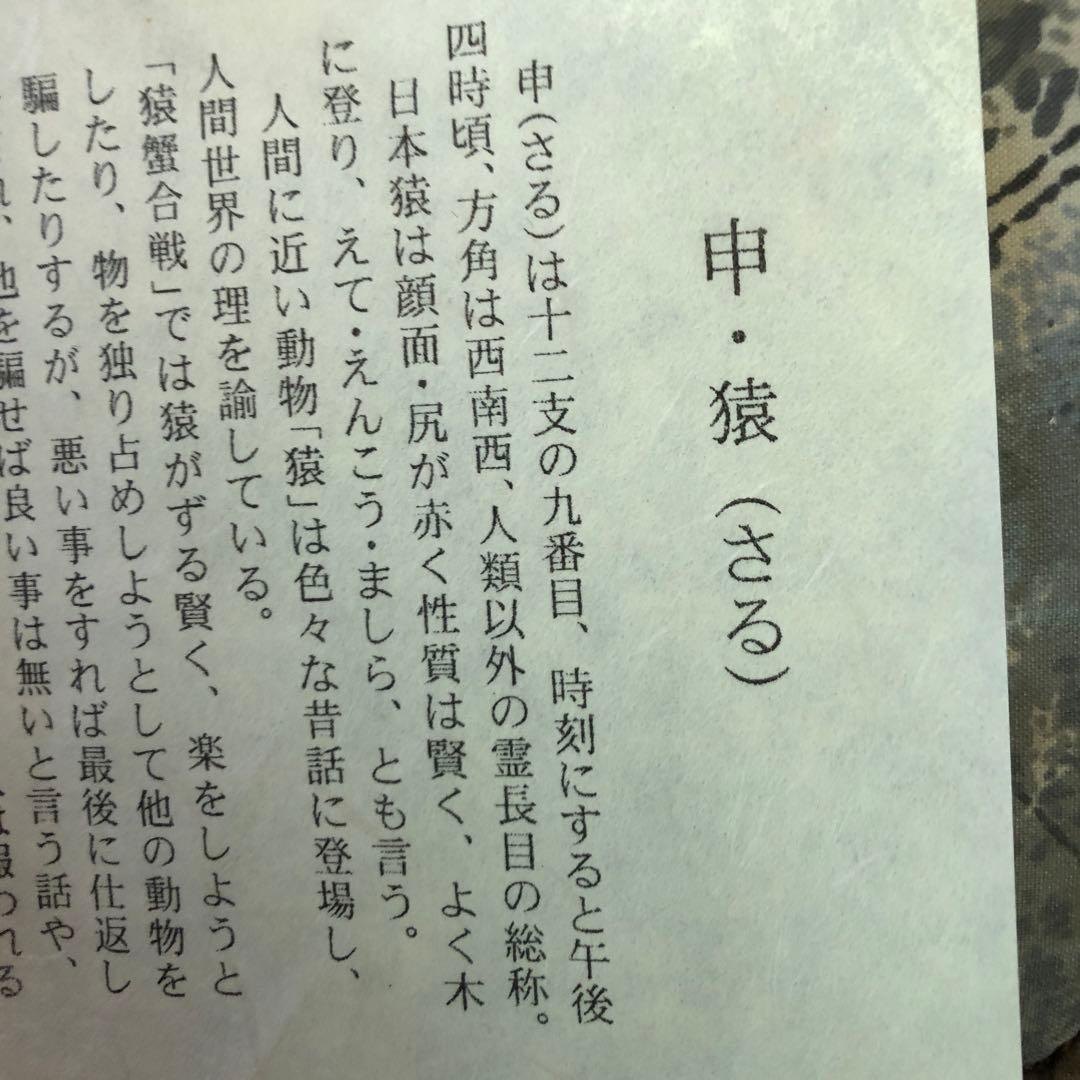 申・猿(さる)
申(さる)は十二支の九番目、時刻にすると午後
四時頃、方角は西南西、人類以外の霊長目の総称。
日本猿は顔面・尻が赤く性質は賢く、よく木
に登り、えて・えんこう・ましら、とも言う。
人間に近い動物「猿」は色々な昔話に登場し、
人間世界の理を諭している。
「猿蟹合戦」では猿がずる賢く、楽をしようと
したり、物を独り占めしようとして他の動物を
騙したりするが、悪い事をすれば最後に仕返し
れ、他を騙せば良い事は無いと言う話や、
報われる